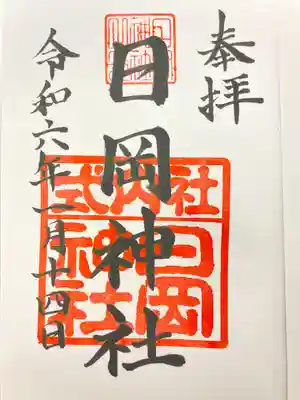 奉拝
日岡神社
令和六年一月十四日
式内社
日岡神社